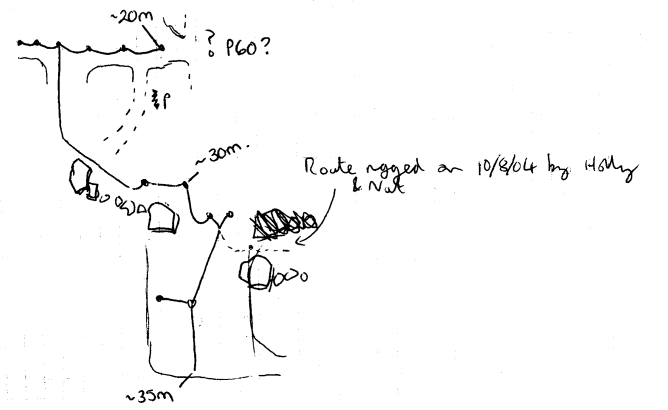 ~20m
? P60?
P
~30m.
Route rigged on 10/8/04 by Holly
& Nat
~35m